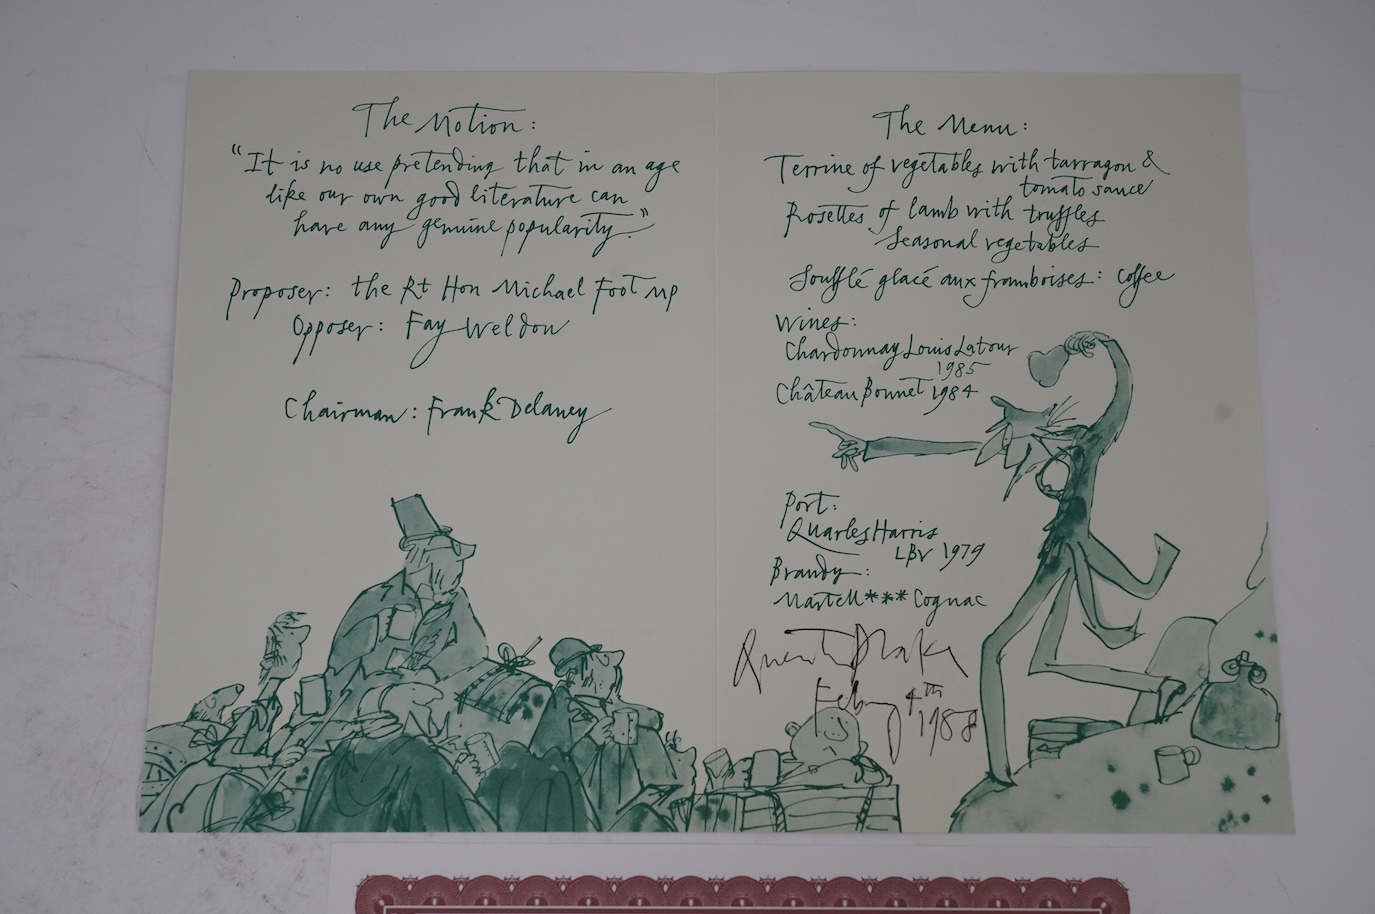 The Motion:
"It is no use pretending that in an age
like our own good literature can
have any genuine popularity."
Proposer: the Rt Hon Michael Foot MP
Opposer: Fay Weldon
Chairman: Frank Delaney
The Menu:
Terrine of vegetables with tarragon &
tomato sauce
Rosettes of lamb with truffles
Seasonal vegetables
Soufflé glacé aux framboises: coffee
Wines:
Chardonnay Louis Latour
1985
Château Bonnet 1984
Port:
Quarles Harris
LBV 1979
Brandy:
Martell*** Cognac
Quentin Blake
Feby 4th
1988